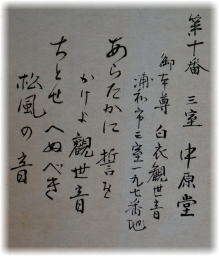 第十番 三室 中原堂
御本尊 白衣観世音
浦和市三室一九七番地
あらたかに 誓を
かけよ 觀世音
ちとせ へぬべき
松風の音